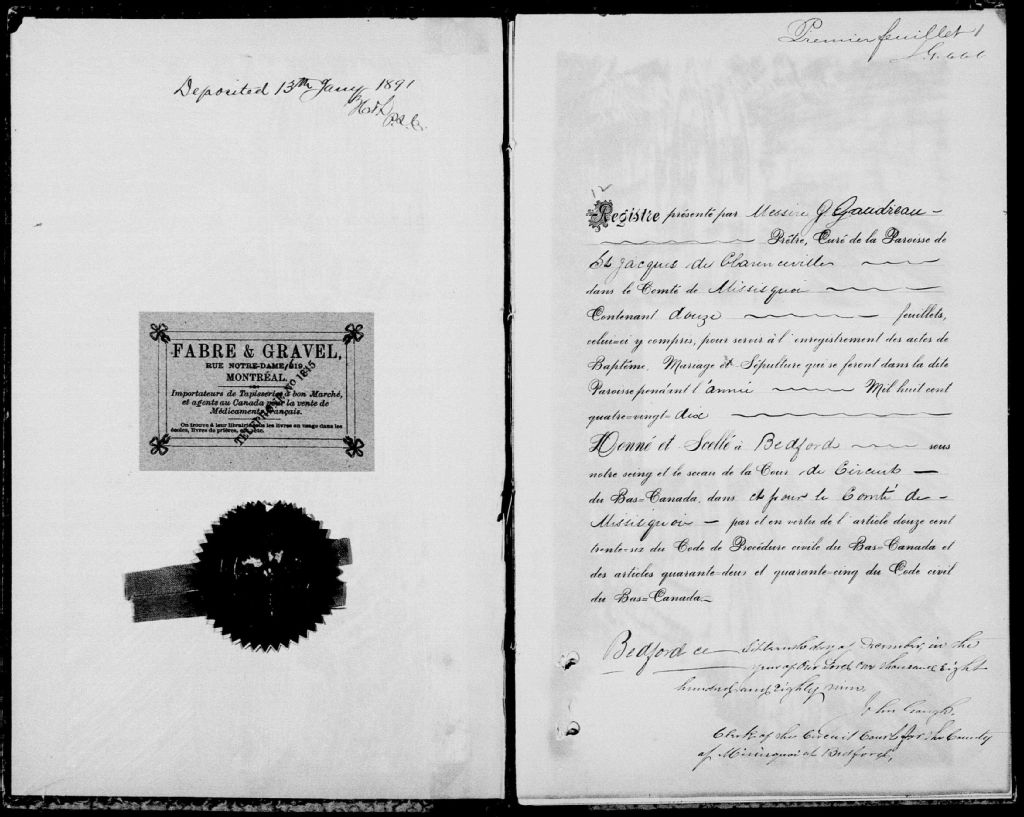 Deposited 13th Jany 1891
FABRE & GRAVEL,
RUE NOTRE-DAME, 219
MONTRÉAL.
Importateurs de Tapisseries à bon Marché,
et agents au Canada pour la vente de
Médicaments français.
On trouve à leur librairie tous les livres en usage dans les
écoles, livres de prières, etc.
TELEPHONE No 1815
Premier feuillet 1
12
Registre présenté par Messire G Gaudreau
Prêtre, Curé de la Paroisse de
St Jacques de Clarenceville
dans le Comté de Missisquoi
Contenant douze feuillets,
celui-ci y compris, pour servir à l'enregistrement des actes de
Baptême, Mariage et Sépulture qui se feront dans la dite
Paroisse pendant l'année Mil huit cent
quatre-vingt-dix
Donné et Scellé à Bedford sous
notre seing et le sceau de la Cour de Circuit
du Bas-Canada, dans et pour le Comté de
Missisquoi par et en vertu de l'article douze cent
trente-six du Code de Procédure civile du Bas-Canada et
des articles quarante-deux et quarante-cinq du Code civil
du Bas-Canada.
Bedford ce day of December in the
year of Our Lord one thousand eight
hundred and eighty nine.
John
Clerk of the Circuit Court for the County
of Missisquoi at Bedford,